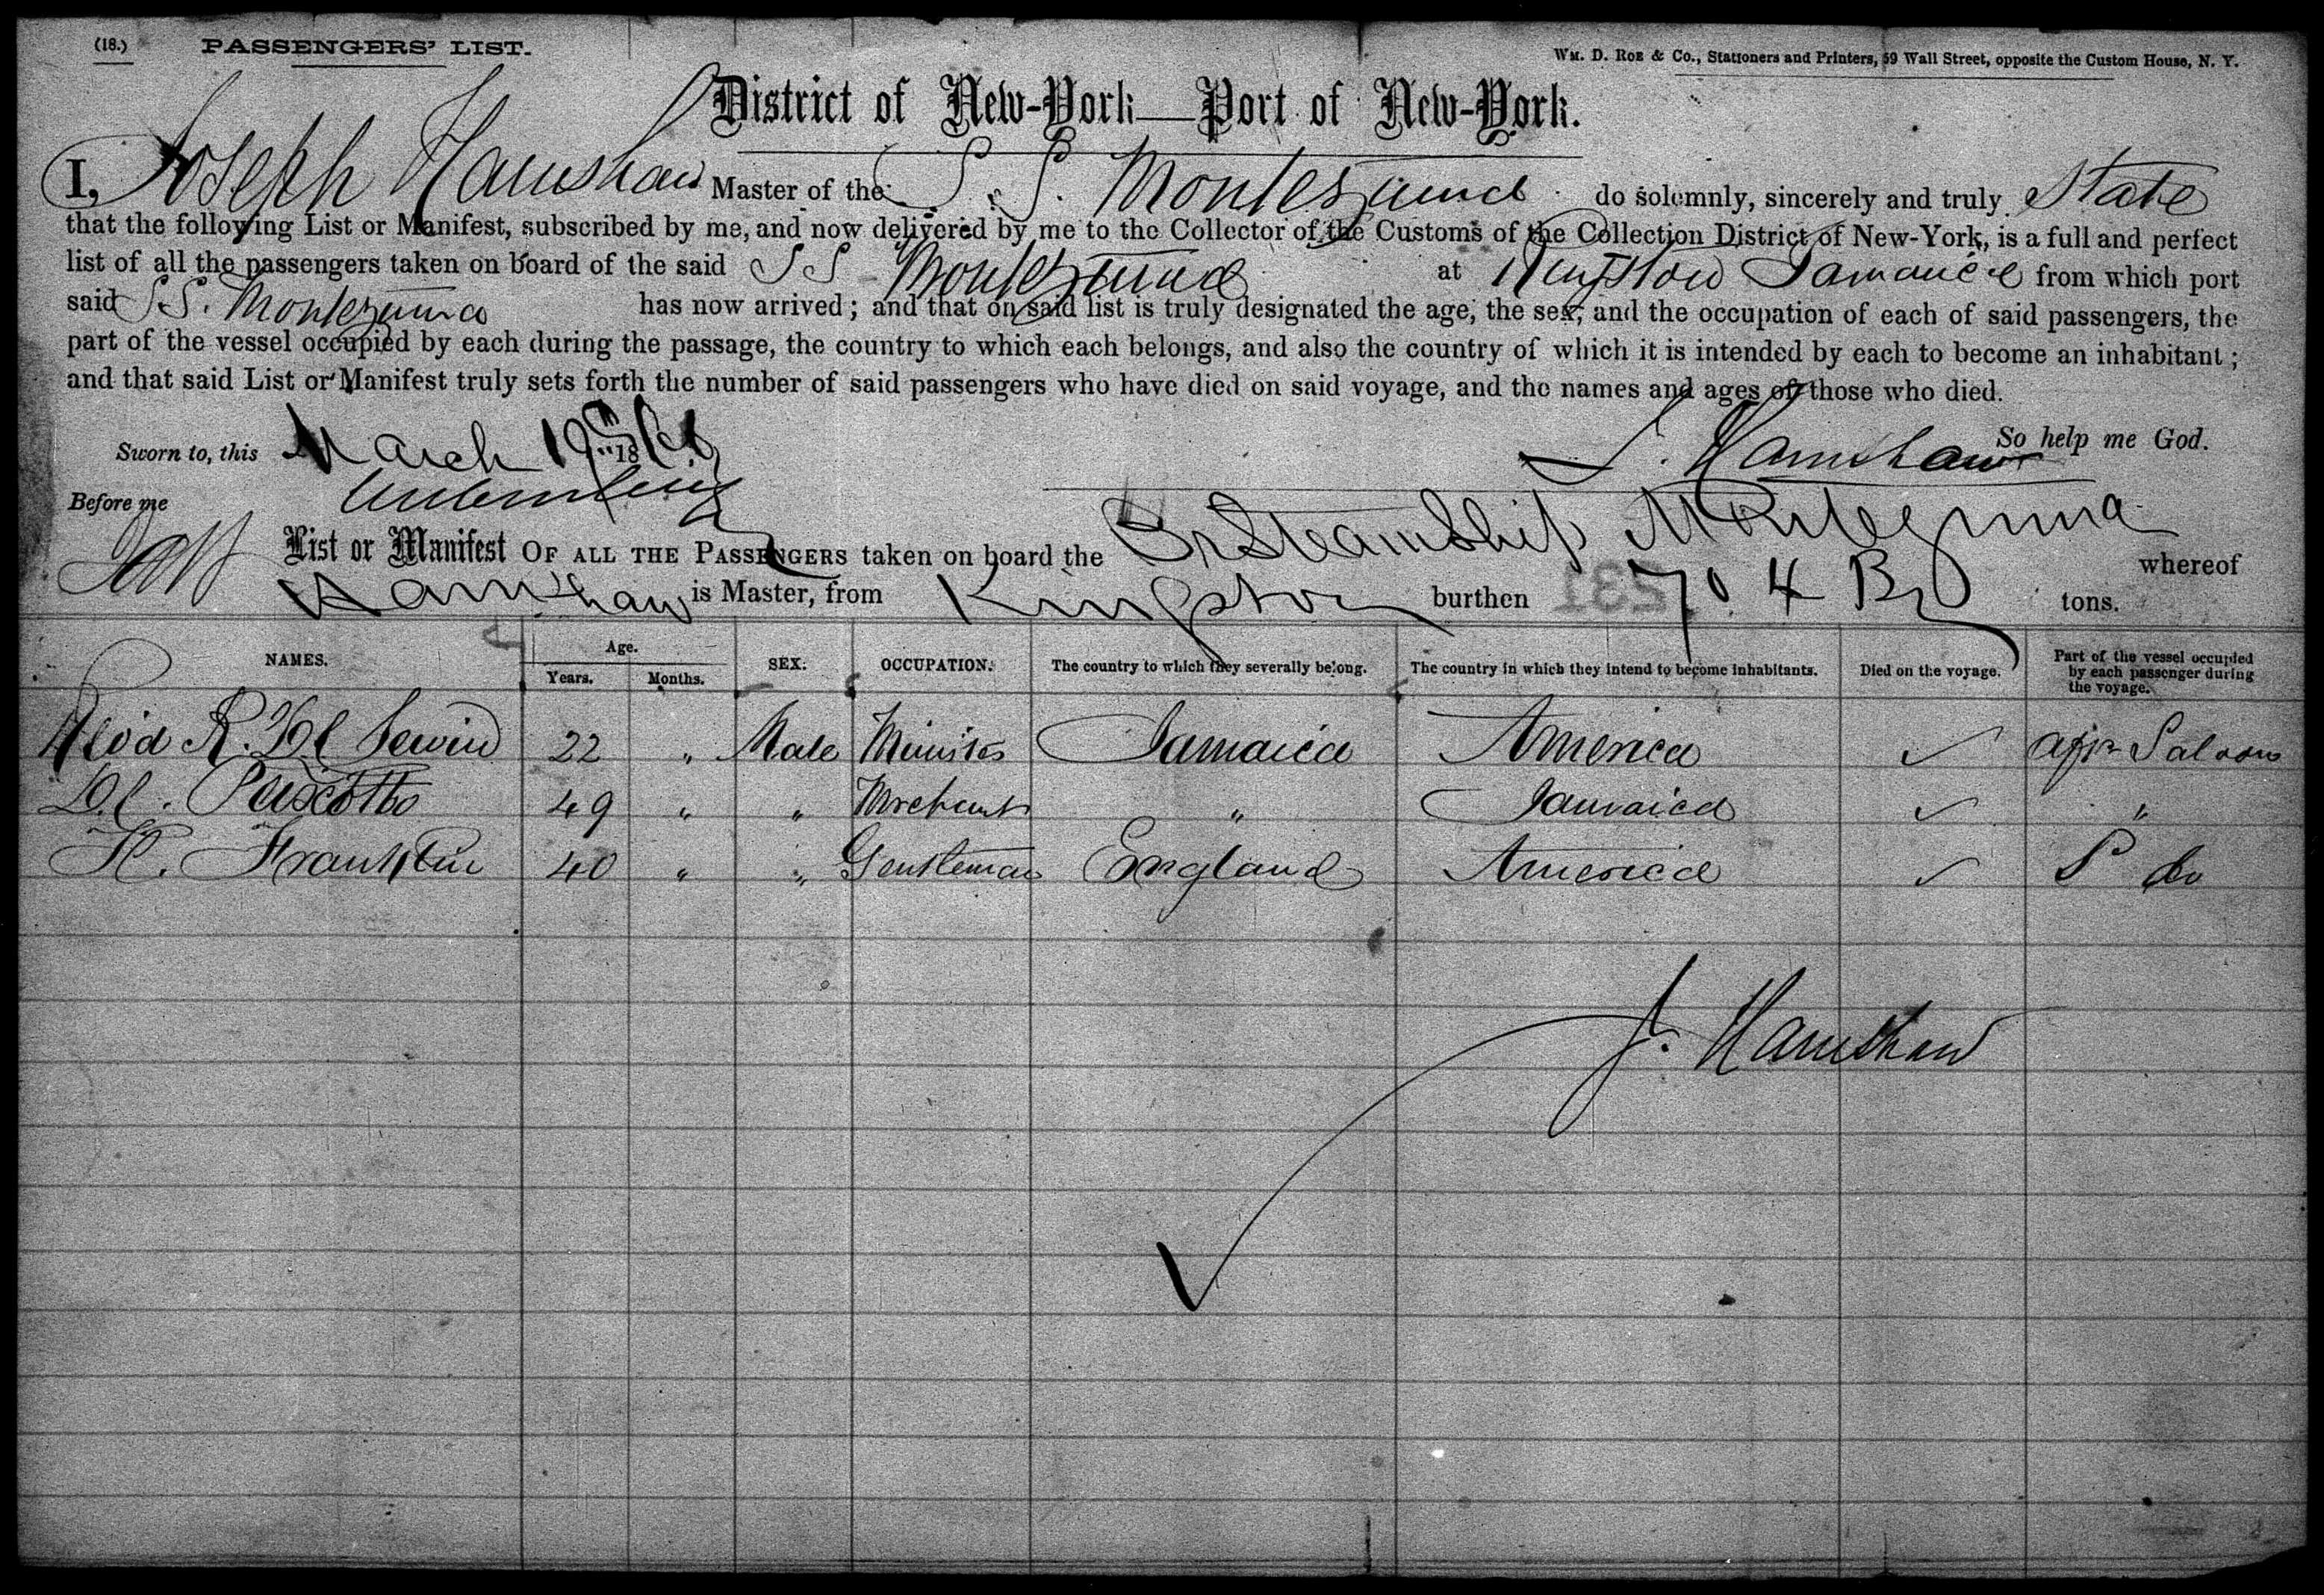 (18.) PASSENGERS' LIST. Wm. D. Roe & Co., Stationers and Printers, 59 Wall Street, opposite the Custom House, N. Y.
District of New-York—Port of New-York.
I, Joseph Hamshaw Master of the S. S. Montezuma do solemnly, sincerely and truly State
that the following List or Manifest, subscribed by me, and now delivered by me to the Collector of the Customs of the Collection District of New-York, is a full and perfect
list of all the passengers taken on board of the said S S Montezuma at Kingston Jamaica from which port
said S S. Montezuma has now arrived; and that on said list is truly designated the age, the sex, and the occupation of each of said passengers, the
part of the vessel occupied by each during the passage, the country to which each belongs, and also the country of which it is intended by each to become an inhabitant;
and that said List or Manifest truly sets forth the number of said passengers who have died on said voyage, and the names and ages of those who died.
So help me God.
Sworn to, this March 19 18 J. Hamshaw
Before me
List or Manifest OF ALL THE PASSENGERS taken on board the Br Steamship Montezuma whereof
Hamshaw is Master, from Kingston burthen 704 Br tons.
NAMES. Age. Years. Months. SEX. OCCUPATION. The country to which they severally belong. The country in which they intend to become inhabitants. Died on the voyage. Part of the vessel occupied by each passenger during the voyage.
R. 22 " Male Minister Jamaica America ✓ Saloon
49 " " Merchant " Jamaica ✓ "
H. Franklin 40 " " Gentleman England America ✓ do
J. Hamshaw